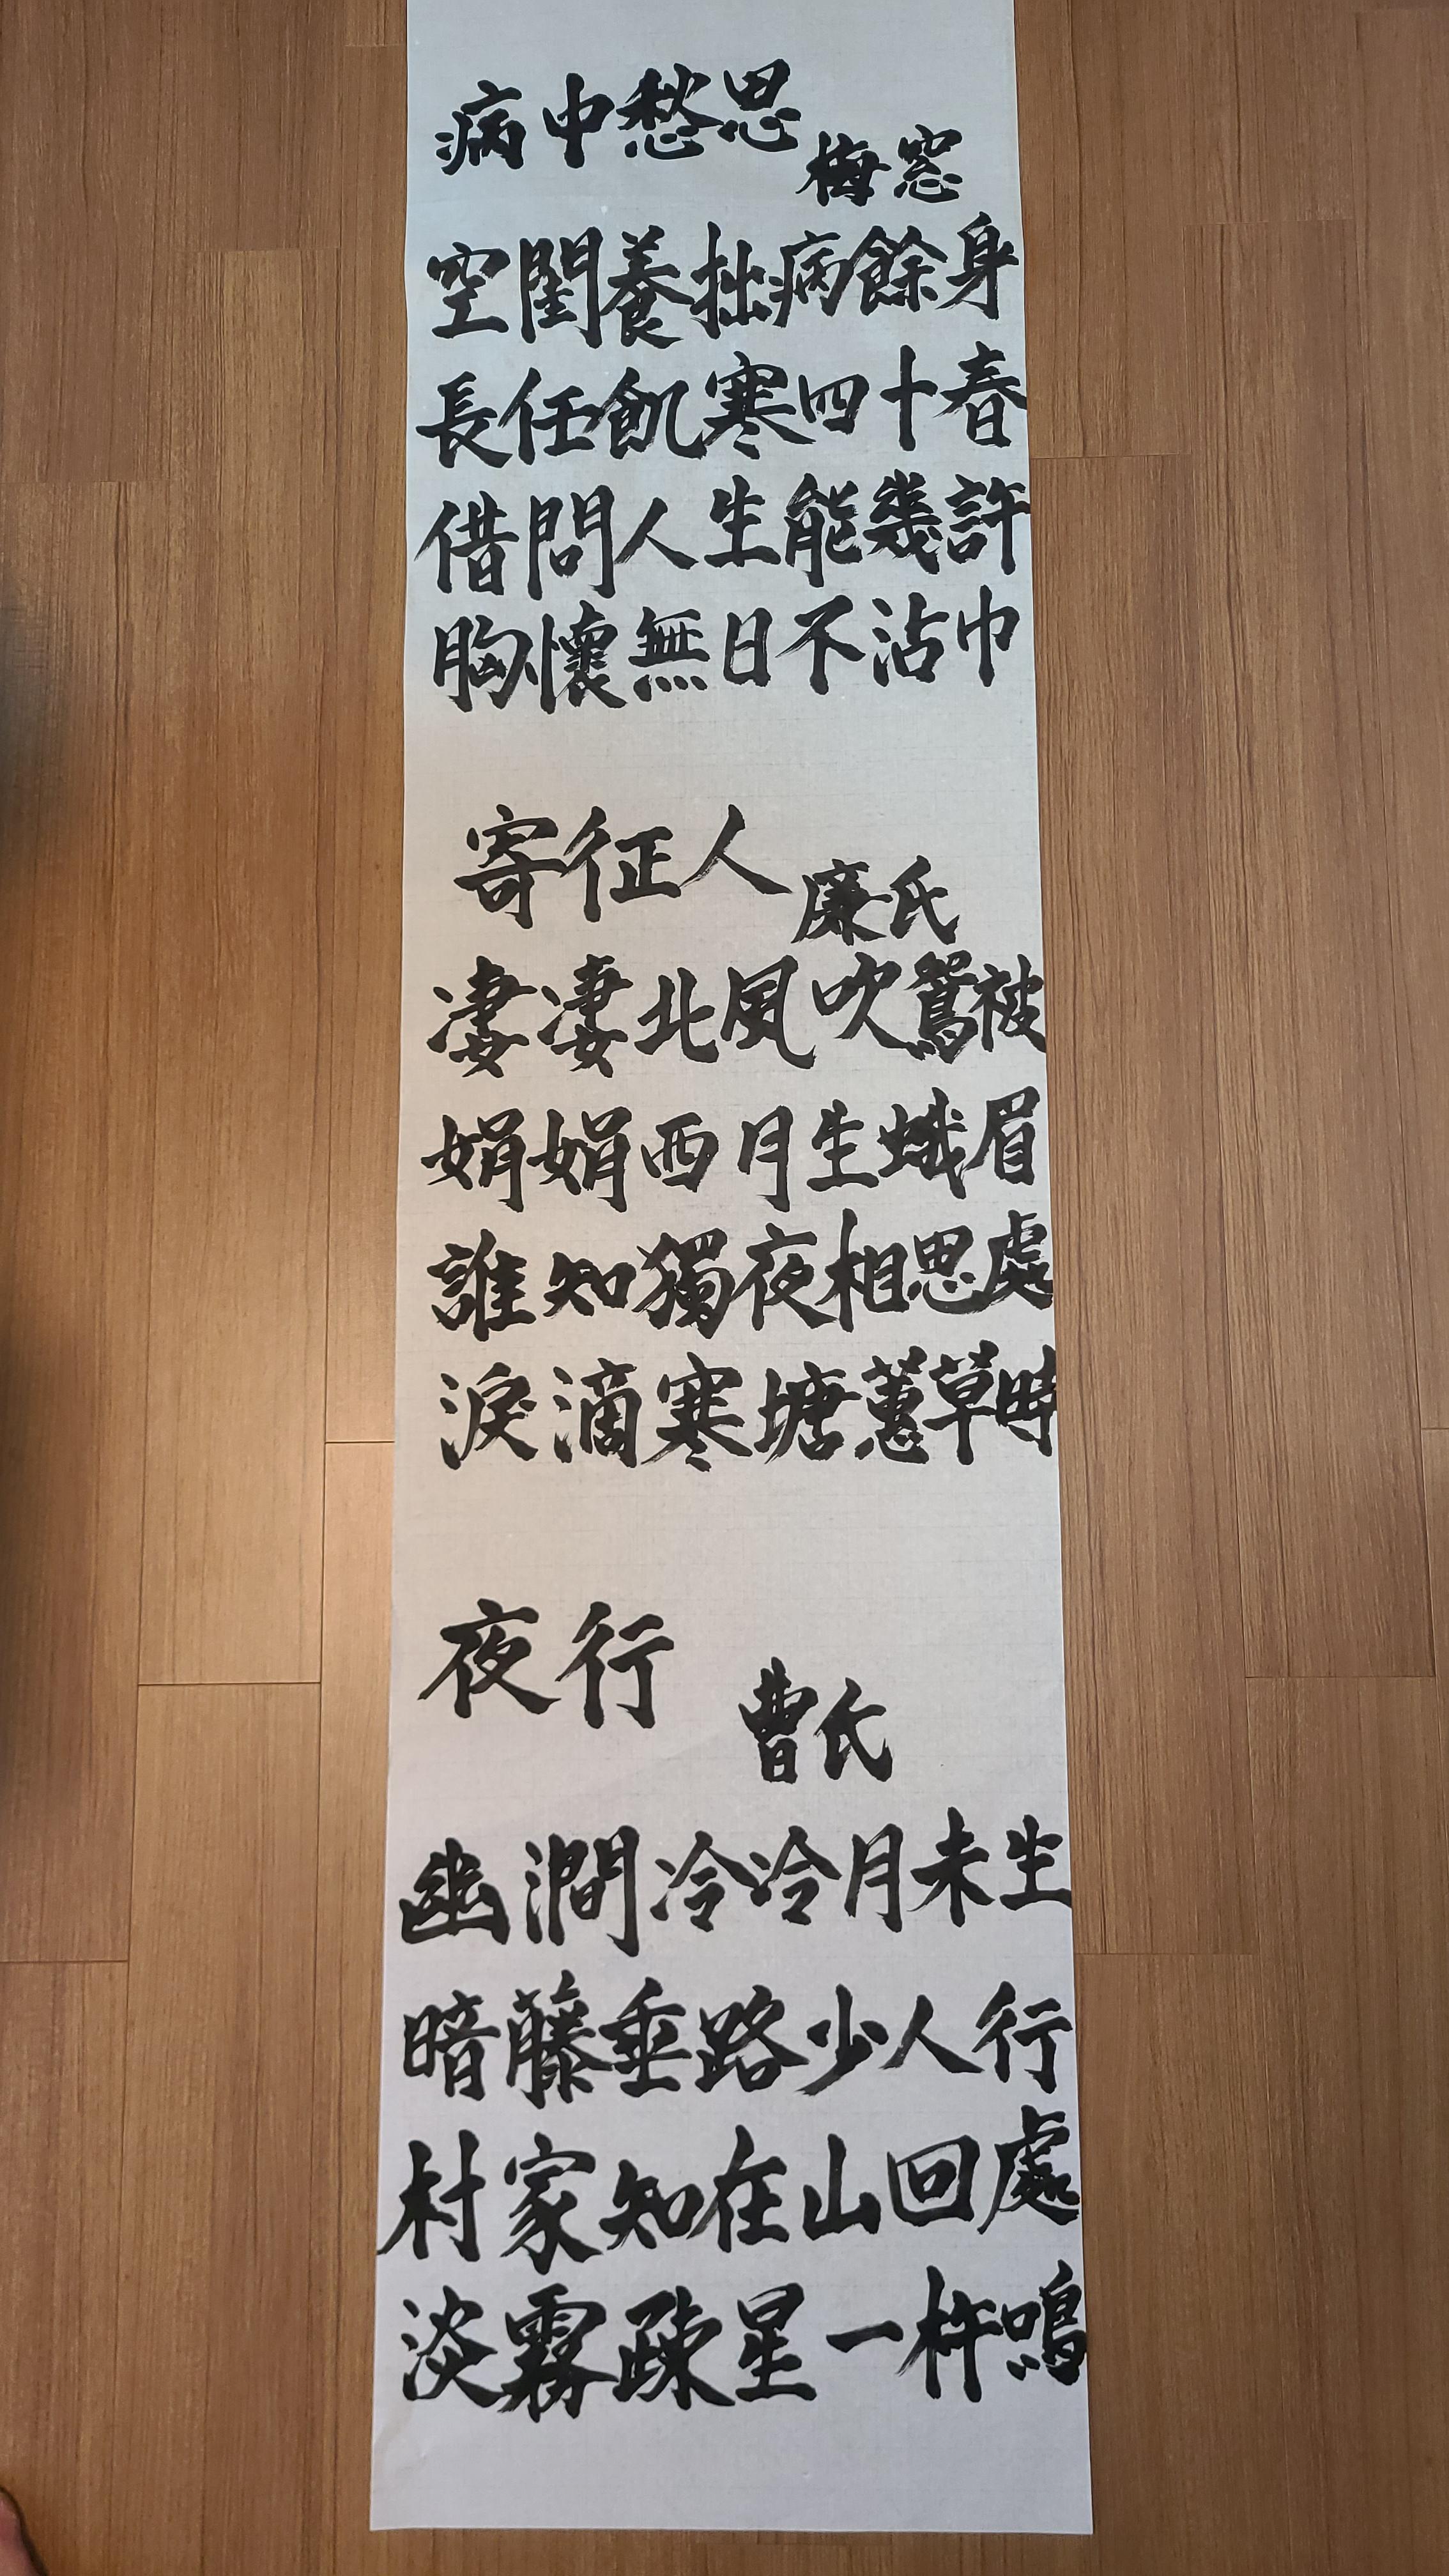 病中愁思
梅窓
空閨養拙病餘身
長任飢寒四十春
借問人生能幾許
胸懷無日不沾巾
寄征人
廉氏
凄凄北風吹鴛被
娟娟西月生蛾眉
誰知獨夜相思處
淚滴寒塘蕙草時
夜行
曹氏
幽澗冷冷月未生
暗藤垂路少人行
村家知在山回處
淡霧疎星一杵鳴